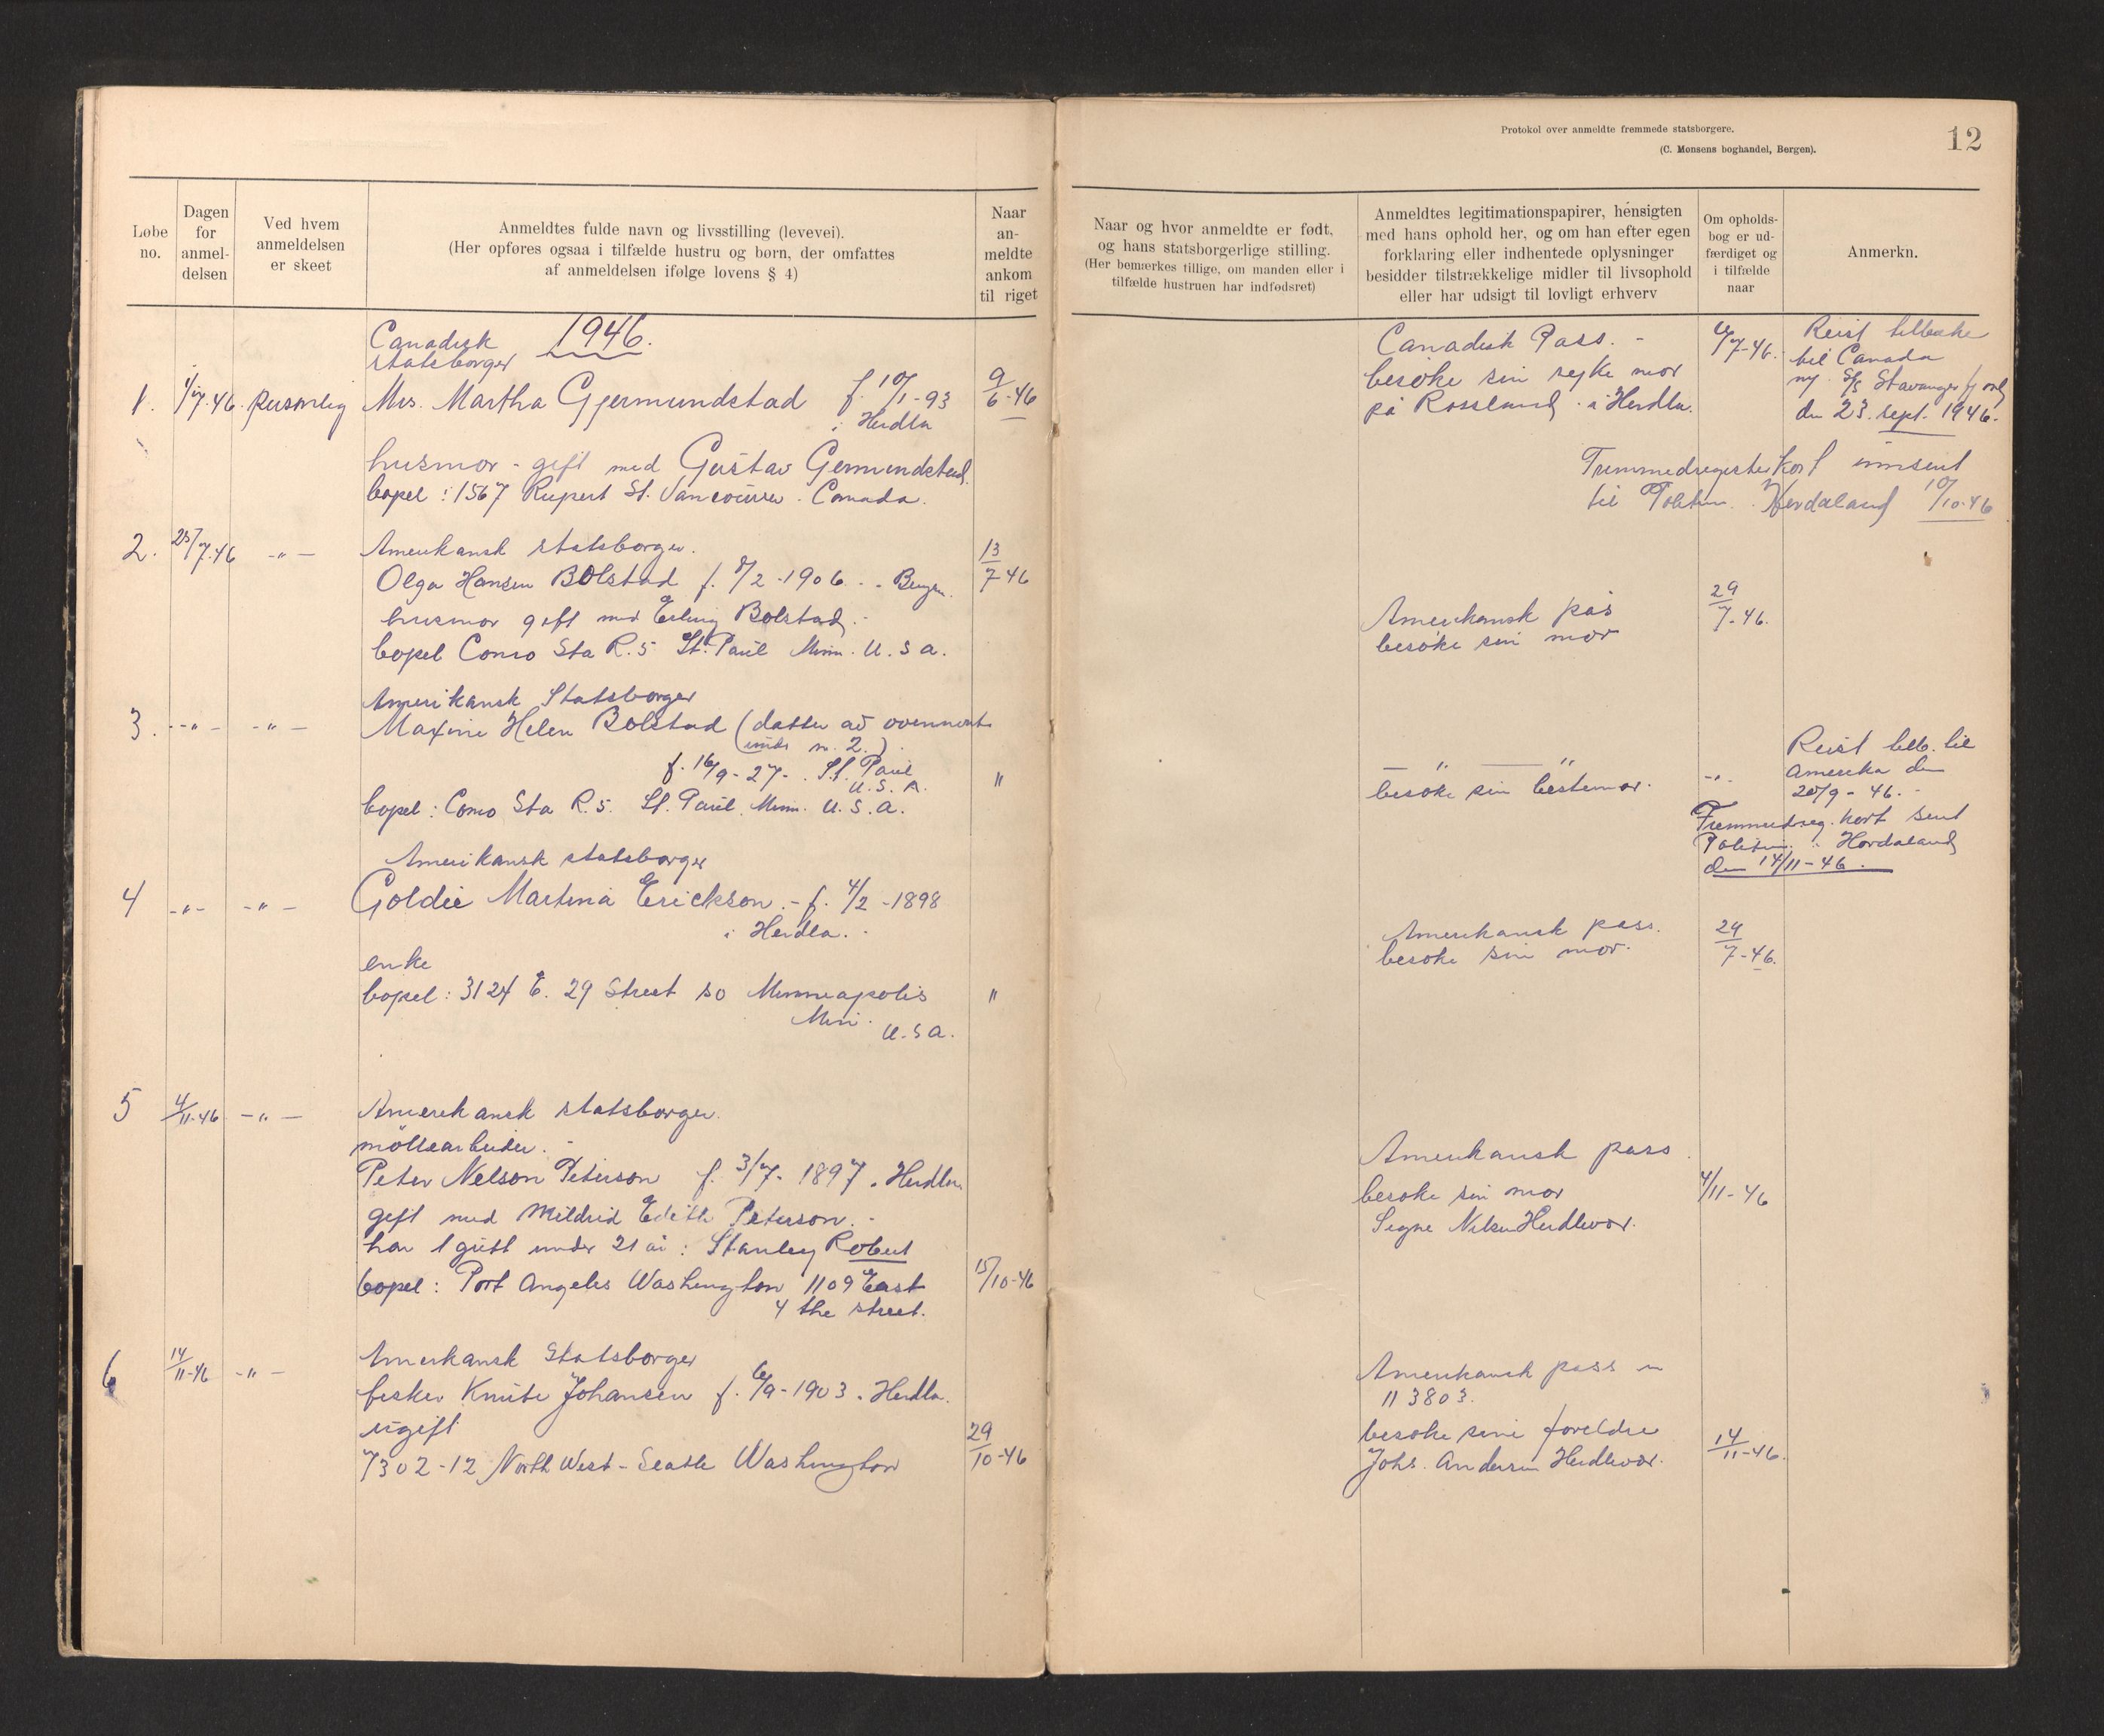 Protokol over anmeldte fremmede statsborgere.
(C. Monsens boghandel, Bergen).
12
Løbe no.
Dagen for anmel-delsen
Ved hvem anmeldelsen er skeet
Anmeldtes fulde navn og livsstilling (levevei).
(Her opføres ogsaa i tilfælde hustru og børn, der omfattes
af anmeldelsen ifølge lovens § 4)
Naar an-meldte ankom til riget
Naar og hvor anmeldte er født,
og hans statsborgerlige stilling.
(Her bemærkes tillige, om manden eller i
tilfælde hustruen har indfødsret)
Anmeldtes legitimationspapirer, hensigten
med hans ophold her, og om han efter egen
forklaring eller indhentede oplysninger
besidder tilstrækkelige midler til livsophold
eller har udsigt til lovligt erhverv
Om opholds-bog er ud-færdiget og i tilfælde naar
Anmerkn.
1946.
Canadisk
statsborger
1. personlig Mrs. Martha Gjermundstad f. 10/1-93
i Herdla
9/6-46
husmor - gift med Gustav Germundstad.
bopel: 1567 Rupert St. Vancouver. Canada.
Canadisk Pass. -
besøke sin syke mor
på Rossland i Herdla.
6/7-46.
Reist tilbake
til Canada
m/ S/S Stavangerfjord
den 23. sept. 1946.
Fremmedregisterkort innsent
til Politim. Hordaland 10/10-46
2. 23/7.46 -"- Amerikansk statsborger.
Olga Hansen Bolstad f. 8/2-1906 - Bergen.
13/7-46
husmor gift med Erling Bolstad.
bopel Como Sta R.5 St. Paul Minn. U.S.A.
Amerikansk pas
besøke sin mor
29/7-46.
Amerikansk Statsborger
3. -"- -"- Maxine Helen Bolstad (datter av ovennevnte
(under nr. 2.)
f. 16/9-27- St. Paul
U.S.A.
"
bopel: Como Sta R.5. St. Paul. Minn. U.S.A.
-"- -"-
besøke sin bestemor.
-"-
Reist tilb. til
Amerika den
20/9-46.
Fremmedreg. kort sent
Politim. i Hordaland
den 14/11-46.
Amerikansk statsborger
4 -"- -"- Goldie Martina Erickson - f. 4/2-1898
i Herdla.
enke
bopel: 3124 E. 29 Street so Minneapolis
"
Min.
U.S.A.
Amerikansk pass.
besøke sin mor.
29/7-46.
5 4/11-46 -"- Amerikansk statsborger.
möllearbeider.
Peter Nelson Peterson f. 3/7-1897. Herdla
gift med Mildrid Edith Peterson.
har 1 gutt under 21 år: Stanley Robert
bopel: Port Angeles Washington 1109 East
4 the street.
15/10-46
Amerikansk pass
besøke sin mor
Signe Nilsen Herdlevær.
4/11-46
6 14/11-46 -"- Amerikansk Statsborger
fisker Knute Johansen f. 6/9-1903. Herdla.
ugift
7302-12 North West - Seatle Washington
29/10-46
Amerikansk pass nr
113803.
besøke sine foreldre
Johs. Andersen Herdlevær.
14/11-46.